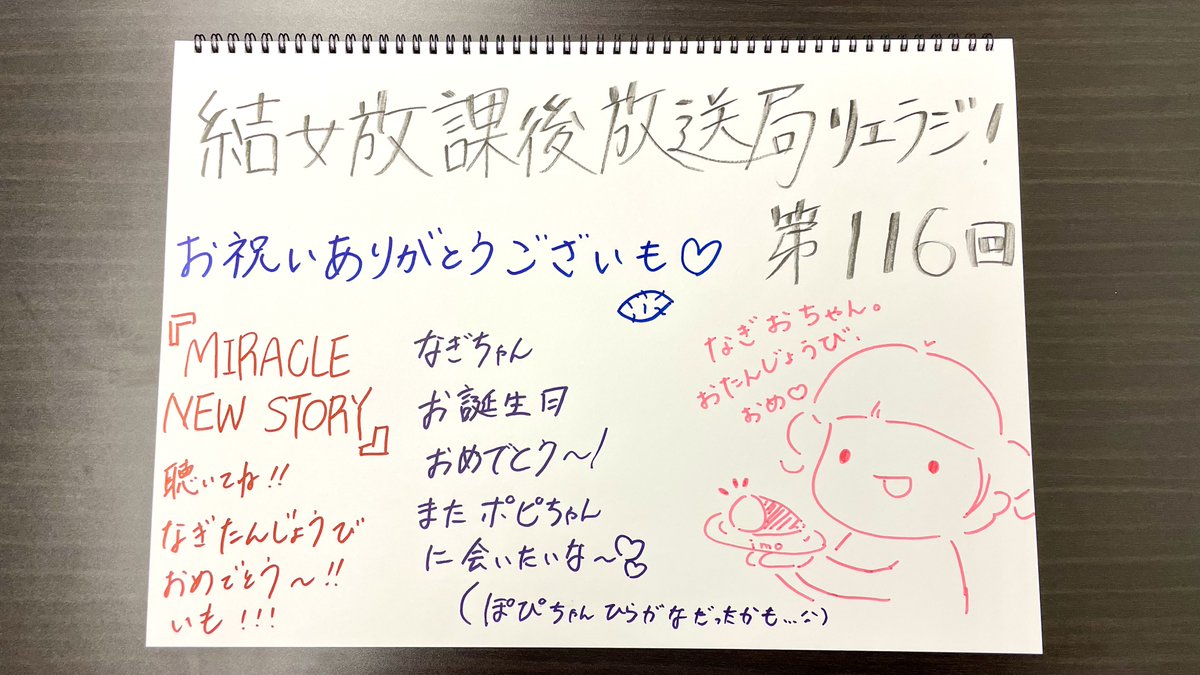 結女放課後放送局リエラジ!
第116回
お祝いありがとうございいも♡
『MIRACLE
NEW STORY』
聴いてね!!
なぎたんじょうび
おめでとう〜!!
いも!!!
なぎちゃん
お誕生日
おめでとう〜!
またポピちゃん
に会いたいな〜♡♡
(ぽぴちゃんひらがなだったかも...;;)
なぎおちゃん。
おたんじょうび!
おめ♡
imo